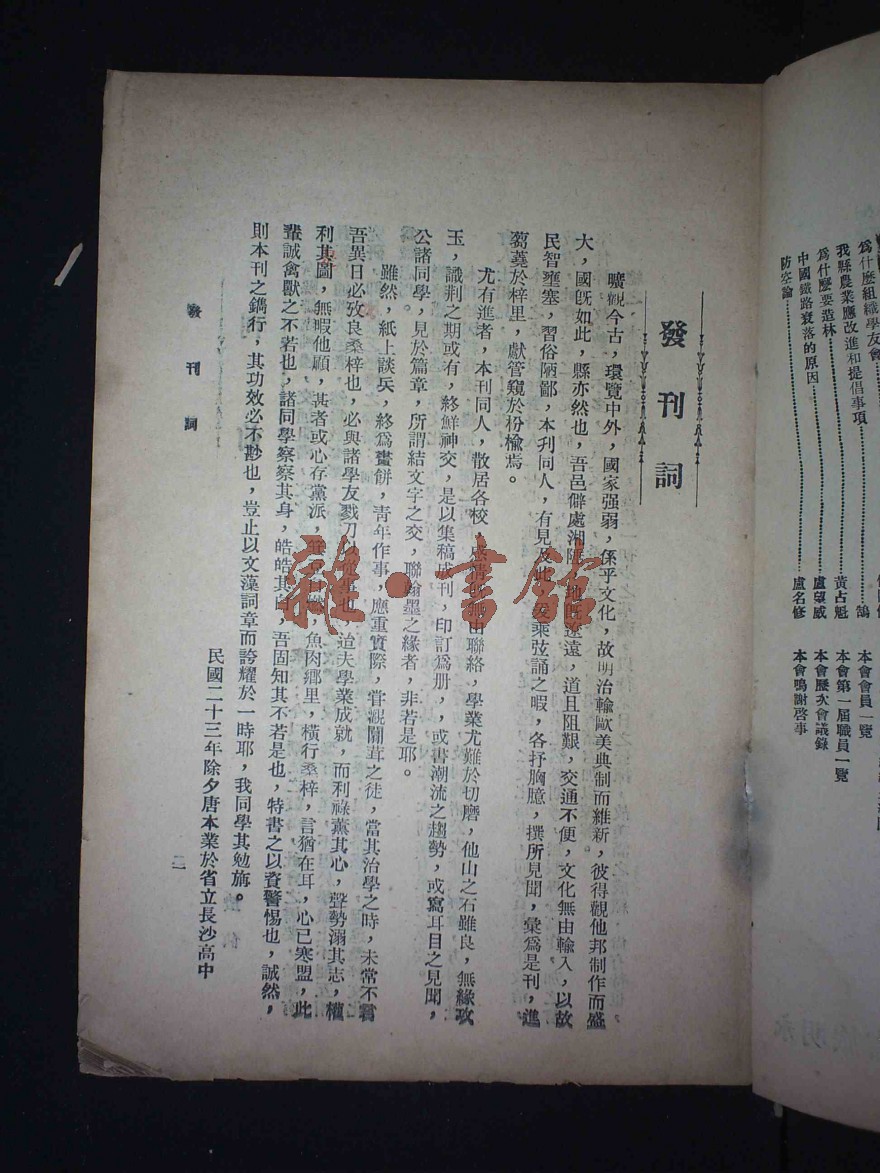 為什麼組織學友會……鵠
我縣農業應改進和提倡事項……黃占魁
為什麼要造林……盧望威
中國鐵路衰落的原因……盧名修
防空論……
本會會員一覽
本會第一屆職員一覽
本會歷次會議錄
本會鳴謝啓事
發刊詞
曠觀今古，環覽中外，國家强弱，係乎文化，故明治輸歐美典制而維新，彼得觀他邦制作而盛
大，國旣如此，縣亦然也，吾邑僻處湘陬，地旣遼遠，道且阻艱，交通不便，文化無由輸入，以故
民智壅塞，習俗陋鄙，本刋同人，有見及此，爰乘弦誦之暇，各抒胸臆，撰所見聞，彙爲是刊，進
蒭蕘於梓里，獻管窺於枌楡焉。
尤有進者，本刊同人，散居各校，感情旣無由聯絡，學業尤難於切磨，他山之石雖良，無緣攻
玉，識荆之期或有，終鮮神交，是以集稿成刊，印訂爲册，，或書潮流之趨勢，或寫耳目之見聞，
公諸同學，見於篇章，所謂結文字之交，聯翰墨之緣者，非若是耶。
雖然，紙上談兵，終爲畫餅，靑年作事，應重實際，嘗觀闒茸之徒，當其治學之時，未常不言
吾異日必攷良桑梓也，必與諸學友戮刀以也，迨夫學業成就，而利祿薰其心，聲勢溺其志，權
利其圖，無暇他顧，甚者或心存黨派，魚肉鄉里，橫行桑梓，言猶在耳，心已寒盟，此
輩誠禽獸之不若也，諸同學察察其身，皓皓其白，吾固知其不若是也，特書之以資警惕也，誠然，
則本刊之鐫行，其功效必不尠也，豈止以文藻詞章而誇耀於一時耶，我同學其勉旃。
民國二十三年除夕唐本業於省立長沙高中
發刊詞
二
雜·書館